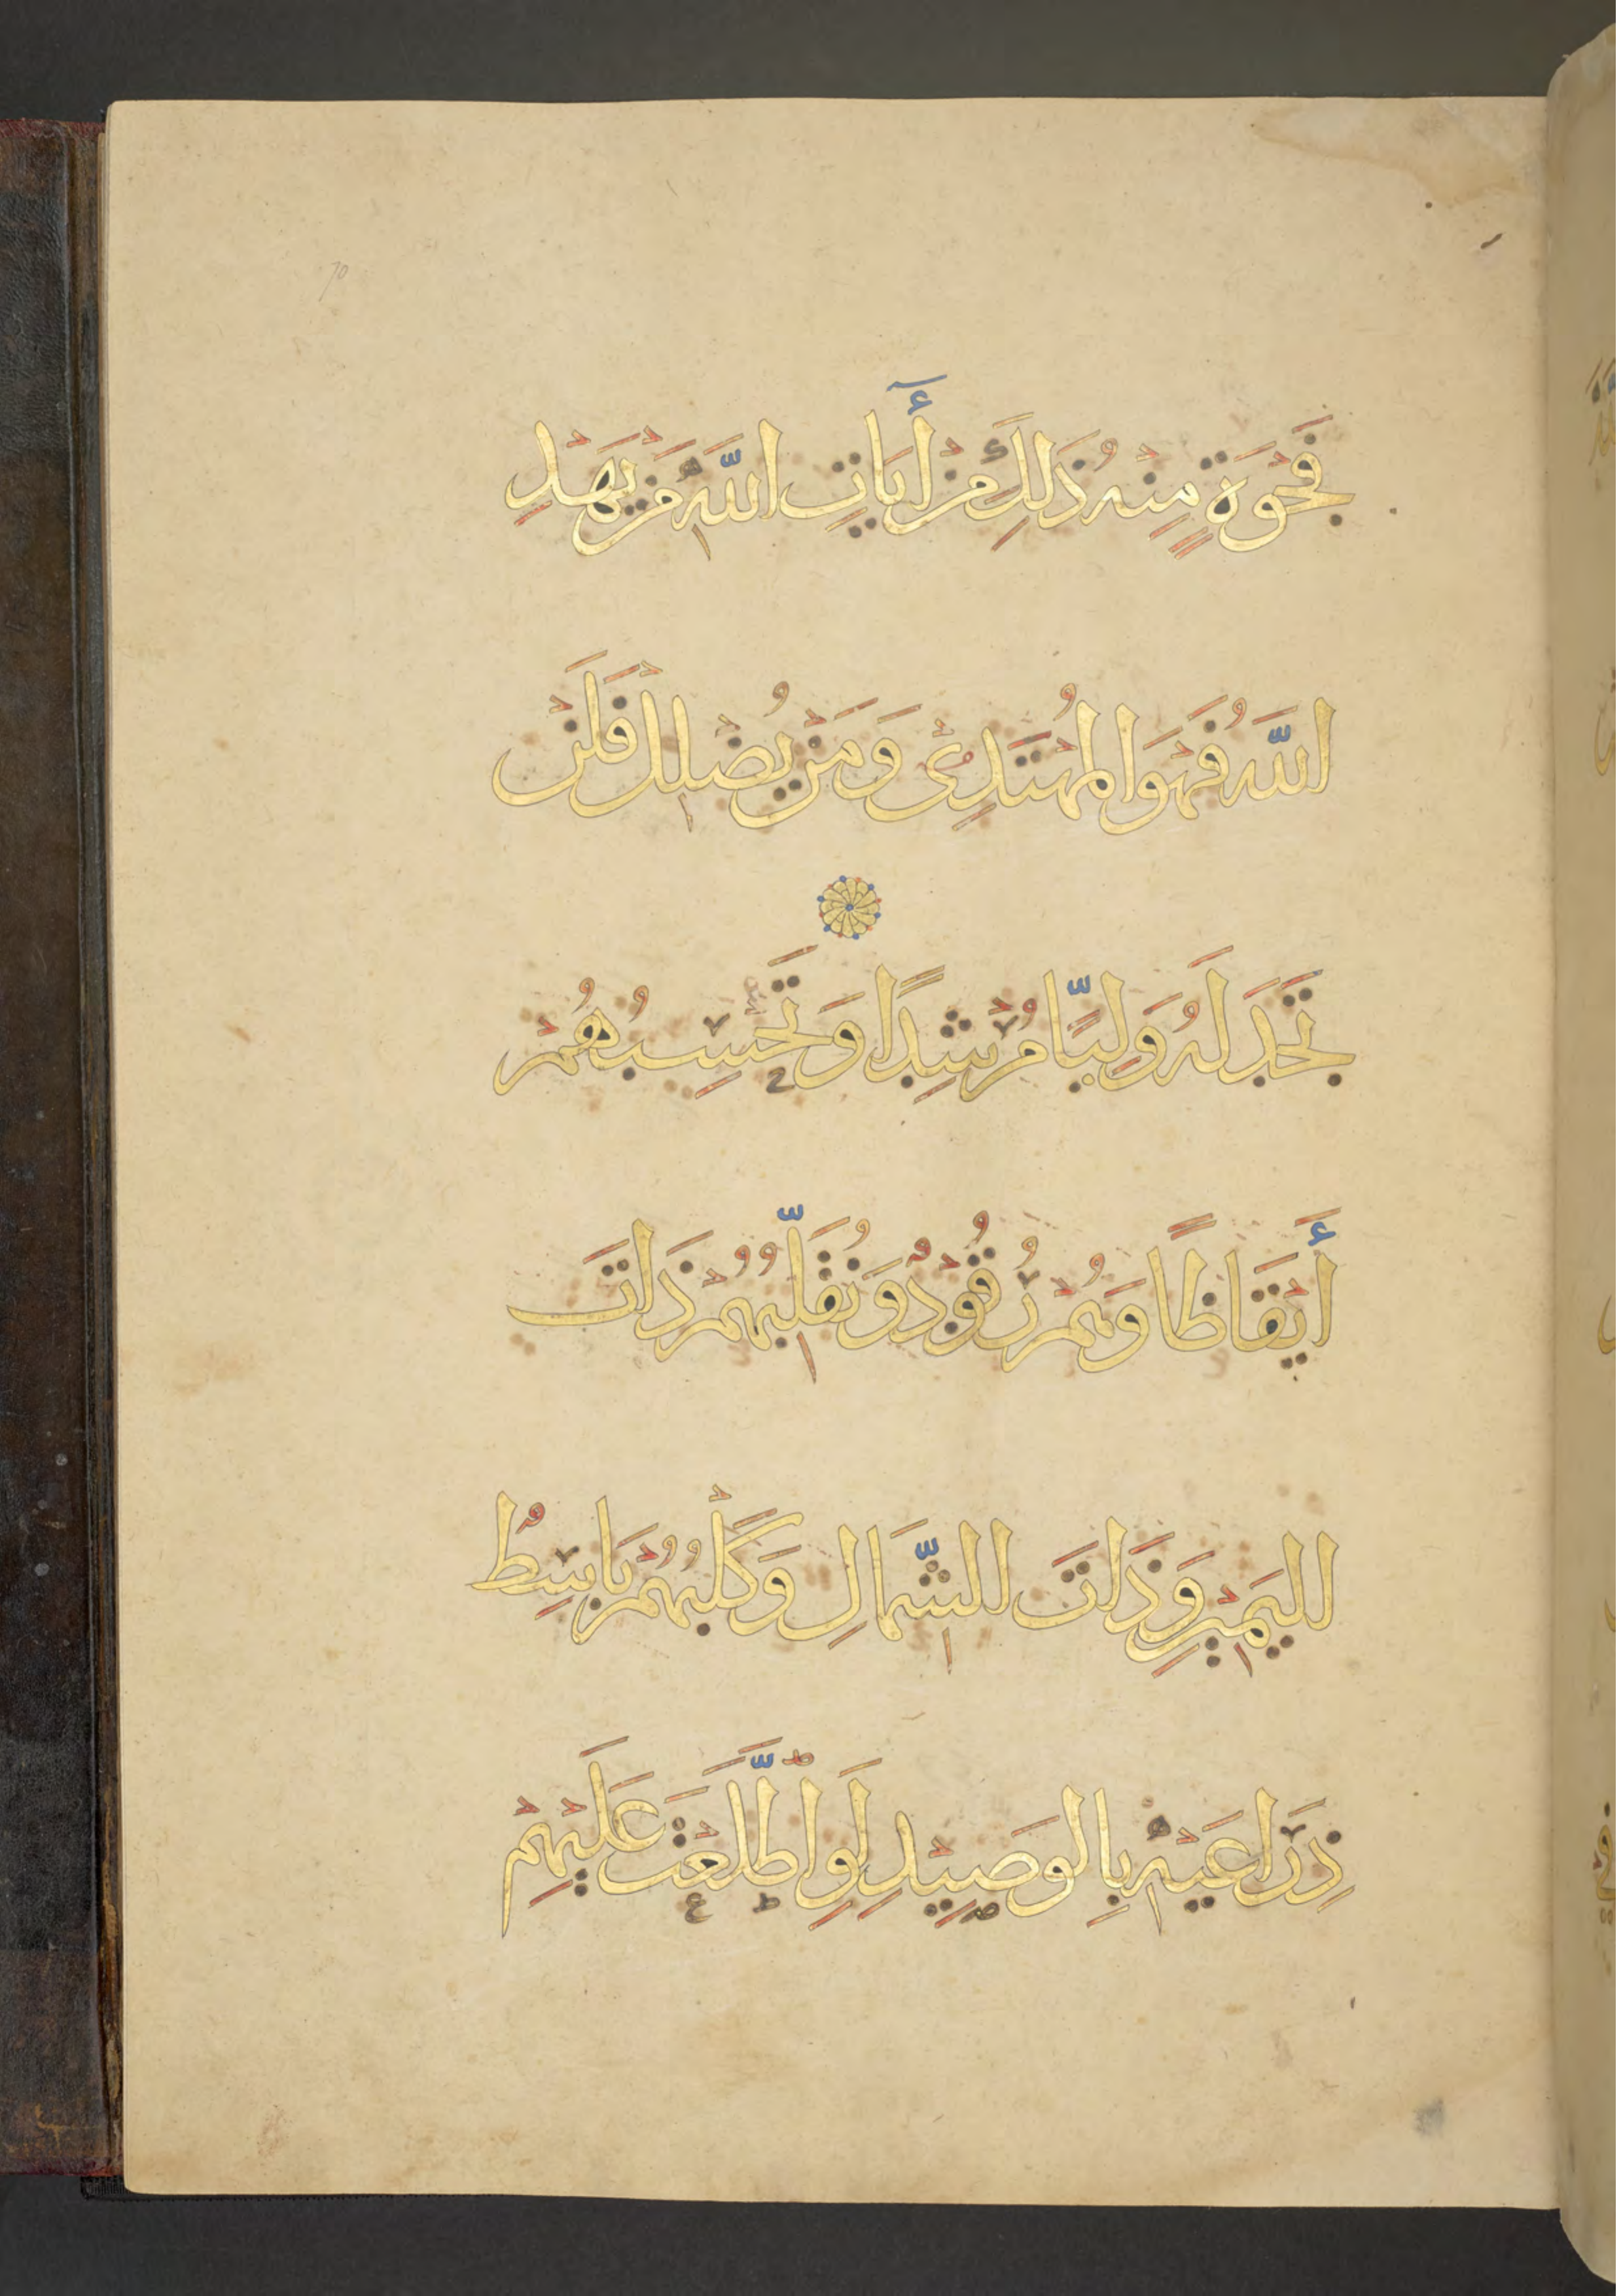 70
فَجْوَةٍ مِنْهُ ذَلِكَ مِنْ أَيَاتِ اللَّهِ مَنْ يَهْدِ
اللَّهُ فَهْوَ الْمُهْتَدِى وَمَنْ يُضْلِلْ فَلَنْ
تَجِدَ لَهُ وَلِيًّا مُرْشِدًا وَتَحْسِبُهُمْ
أَيْقَاظًا وَهُمْ رُقُودٌ وَنُقَلِّبُهُمْ ذَاتَ
الْيَمِينِ وَذَاتَ الشِّمَالِ وَكَلْبُهُمْ بَاسِطٌ
ذِرَاعَيْهِ بِالْوَصِيْدِ لَوِ اطَّلَعْتَ عَلَيْهِمْ